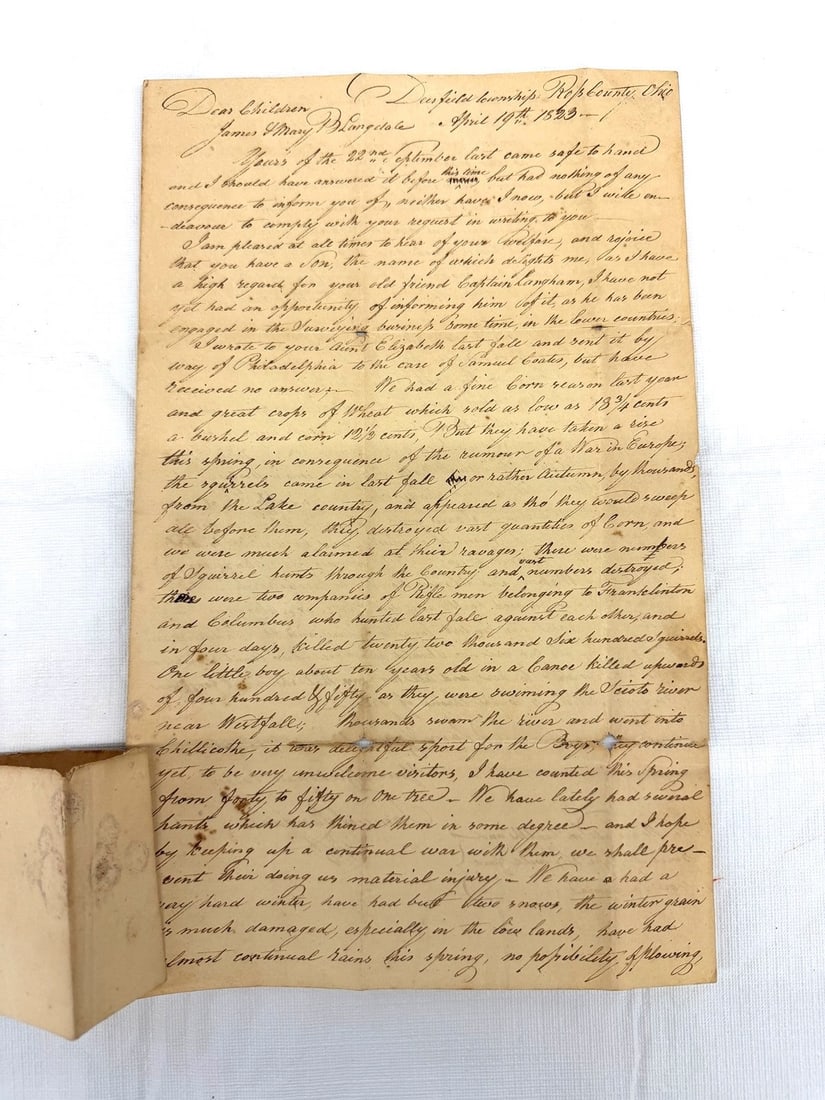 Deerfield township Ross County, Ohio
Dear Children
James & Mary B Langdale April 19th. 1823 —
Yours of the 22nd September last came safe to hand
and I should have answered it before this time but had nothing of any
consequence to inform you of, neither have I now, but I will en-
-deavour to comply with your request in writing to you —
I am pleased at all times to hear of your Welfare, and rejoice
that you have a Son, the name of which delights me, as I have
a high regard for your old friend Captain Langham, I have not
yet had an opportunity of informing him of it, as he has been
engaged in the Surveying business some time, in the lower countries.
I wrote to your Aunt Elizabeth last fall and sent it by
way of Philadelphia to the care of Samuel Coates, but have
received no answer. — We had a fine Corn season last year
and great crops of Wheat which sold as low as 18 3/4 cents
a bushel and corn 12 1/2 cents, But they have taken a rise
this spring, in consequence of the rumour of a War in Europe;
the squirrels came in last fall or rather Autumn, by thousands,
from the Lake country, and appeared as tho' they would sweep
all before them, they destroyed vast quantities of Corn, and
we were much alarmed at their ravages; there were numbers
of Squirrel hunts through the Country and vast numbers destroyed;
there were two companies of Rifle men belonging to Franklinton
and Columbus who hunted last fall against each other, and
in four days, killed twenty two thousand Six hundred Squirrels.
One little boy about ten years old in a Canoe killed upwards
of four hundred & fifty as they were swiming the Scioto river
near Westfall; thousands swam the river and went into
Chillicothe, it was delightful sport for the Boys, they continue
yet, to be very unwelcome visitors, I have counted this Spring
from forty to fifty on one tree — We have lately had several
hunts which has thined them in some degree — and I hope
by keeping up a continual war with them, we shall pre—
vent their doing us material injury, — We have had a
very hard winter, have had but two snows, the winter grain
is much damaged, especially in the low lands, have had
almost continual rains this spring, no possibility of plowing,